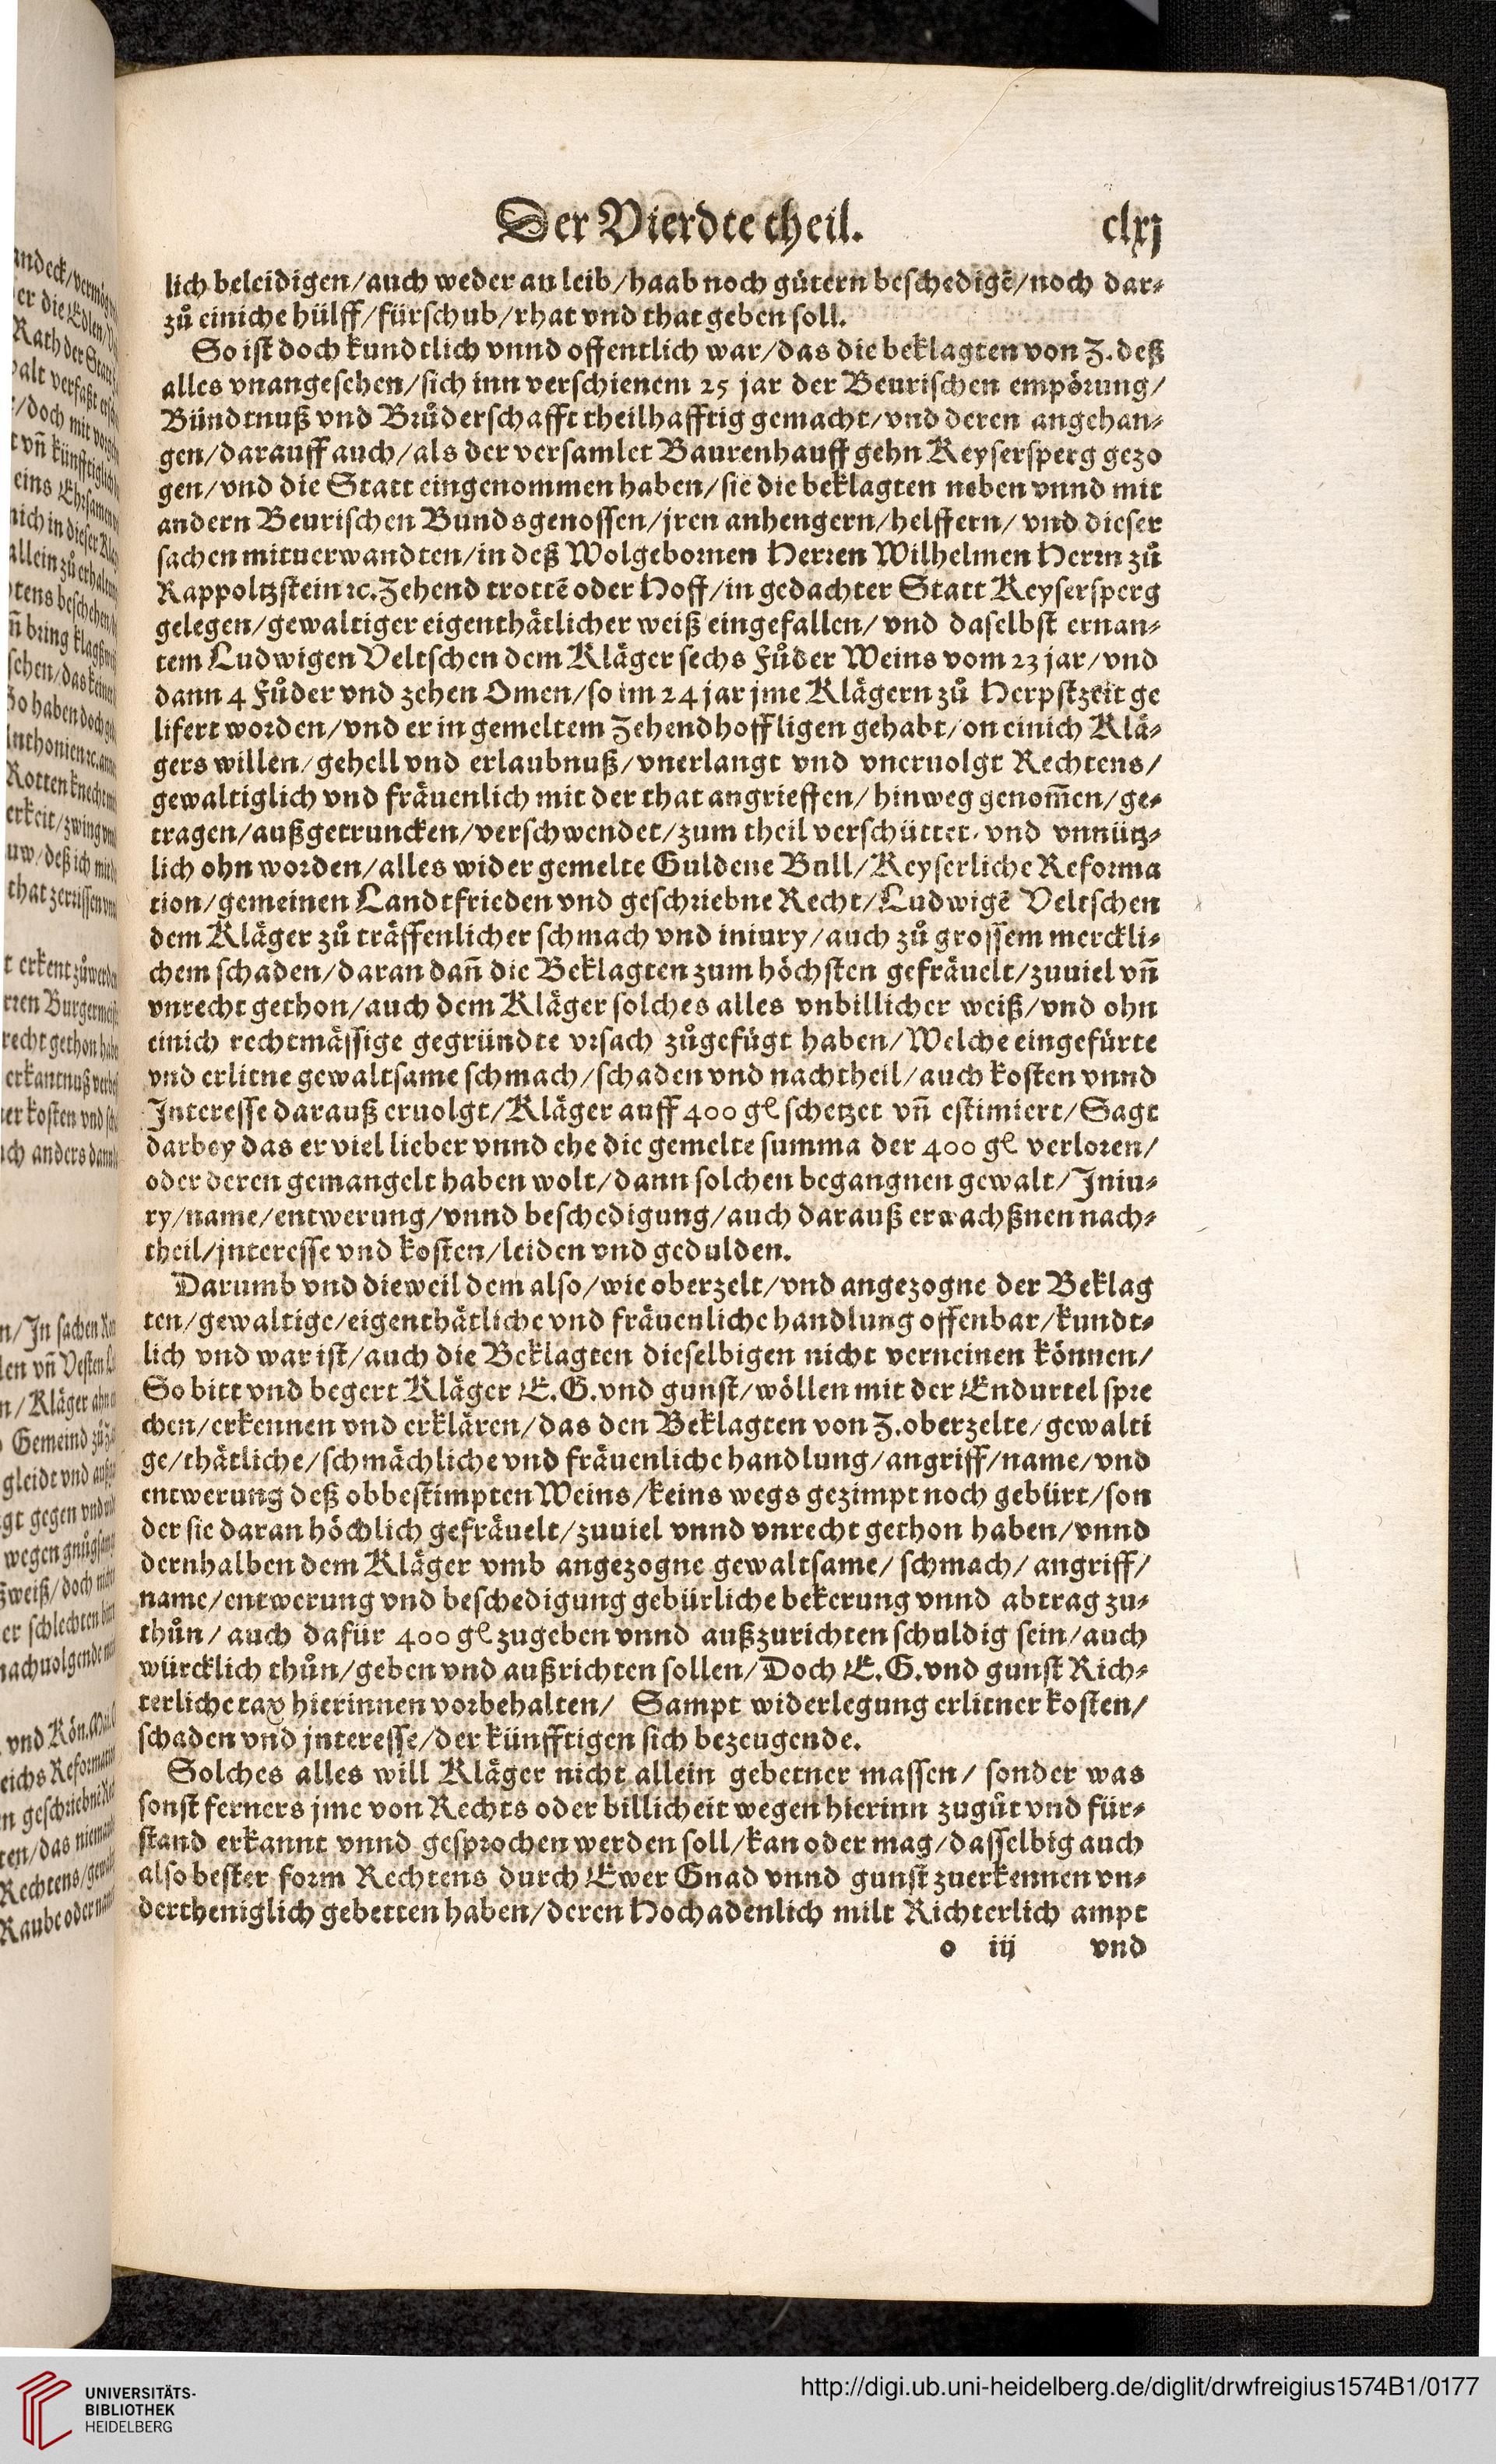 Der Vierdte theil. clxj
lich beleidigen/auch weder an leib/haab noch gütern beschedigẽ/noch dar⸗
zů einiche hülff/fürschub/rhat vnd that geben soll.
So ist doch kundtlich vnnd offentlich war/das die beklagten von Z. deß
alles vnangesehen/sich inn verschienem 25 jar der Beurischen empörung/
Bündtnuß vnd Brůderschafft theilhafftig gemacht/vnd deren angehan⸗
gen/darauff auch/als der versamlet Baurenhauff gehn Keysersperg gezo
gen/vnd die Statt eingenommen haben/sie die beklagten neben vnnd mit
andern Beurischen Bundsgenossen/jren anhengern/helffern/ vnd dieser
sachen mituerwandten/in deß Wolgebornen Herren Wilhelmen Herrn zů
Rappoltzstein ꝛc. Zehend trottẽ oder Hoff/in gedachter Statt Keysersperg
gelegen/gewaltiger eigenthätlicher weiß eingefallen/ vnd daselbst ernan⸗
tem Ludwigen Veltschen dem Kläger sechs Fůder Weins vom 23 jar/vnd
dann 4 Fůder vnd zehen Omen/so im 24 jar jme Klägern zů Herpstzeit ge
lifert worden/vnd er in gemeltem Zehendhoff ligen gehabt/on einich Klä⸗
gers willen/gehell vnd erlaubnuß/vnerlangt vnd vneruolgt Rechtens/
gewaltiglich vnd fräuenlich mit der that angrieffen/hinweg genom̃en/ge⸗
tragen/außgetruncken/verschwendet/zum theil verschüttet/ vnd vnnütz⸗
lich ohn worden/alles wider gemelte Guldene Bull/Keyserliche Reforma
tion/gemeinen Landtfrieden vnd geschriebne Recht/Ludwigẽ Veltschen
dem Kläger zů träffenlicher schmach vnd iniury/auch zů grossem merckli⸗
chem schaden/daran dañ die Beklagten zum höchsten gefräuelt/zuuiel vñ
vnrecht gethon/auch dem Kläger solches alles vnbillicher weiß/vnd ohn
einich rechtmässige gegründte vrsach zůgefügt haben/Welche eingefürte
vnd erlitne gewaltsame schmach/schaden vnd nachtheil/auch kosten vnnd
Interesse darauß eruolgt/Kläger auff 400 gl schetzet vñ estimiert/Sagt
darbey das er viel lieber vnnd ehe die gemelte summa der 400 gl verloren/
oder deren gemangelt haben wolt/dann solchen begangnen gewalt/Iniu⸗
ry/name/entwerung/vnnd beschedigung/auch darauß erwachßnen nach⸗
theil/jnteresse vnd kosten/leiden vnd gedulden.
Darumb vnd dieweil dem also/wie oberzelt/vnd angezogne der Beklag
ten/gewaltige/eigenthätliche vnd fräuenliche handlung offenbar/kundt⸗
lich vnd war ist/auch die Beklagten dieselbigen nicht verneinen können/
So bitt vnd begert Kläger E. G. vnd gunst/wöllen mit der Endurtel spre
chen/erkennen vnd erklären/das den Beklagten von Z. oberzelte/gewalti
ge/thätliche/schmächliche vnd fräuenliche handlung/angriff/name/vnd
entwerung deß obbestimpten Weins/keins wegs gezimpt noch gebürt/son
der sie daran höchlich gefräuelt/zuuiel vnnd vnrecht gethon haben/vnnd
dernhalben dem Kläger vmb angezogne gewaltsame/ schmach/ angriff/
name/entwerung vnd beschedigung gebürliche bekerung vnnd abtrag zu⸗
thůn/ auch dafür 400 gl zugeben vnnd außzurichten schuldig sein/auch
würcklich thůn/geben vnd außrichten sollen/Doch E. G. vnd gunst Rich⸗
terliche tax hierinnen vorbehalten/ Sampt widerlegung erlitner kosten/
schaden vnd jnteresse/der künfftigen sich bezeugende.
Solches alles will Kläger nicht allein gebetner massen/ sonder was
sonst ferners jme von Rechts oder billicheit wegen hierinn zugůt vnd für⸗
stand erkannt vnnd gesprochen werden soll/kan oder mag/dasselbig auch
also bester form Rechtens durch Ewer Gnad vnnd gunst zuerkennen vn⸗
dertheniglich gebetten haben/deren Hochadenlich milt Richterlich ampt
o iij vnd
UNIVERSITÄTS-
BIBLIOTHEK
HEIDELBERG
http://digi.ub.uni-heidelberg.de/diglit/drwfreigius1574B1/0177